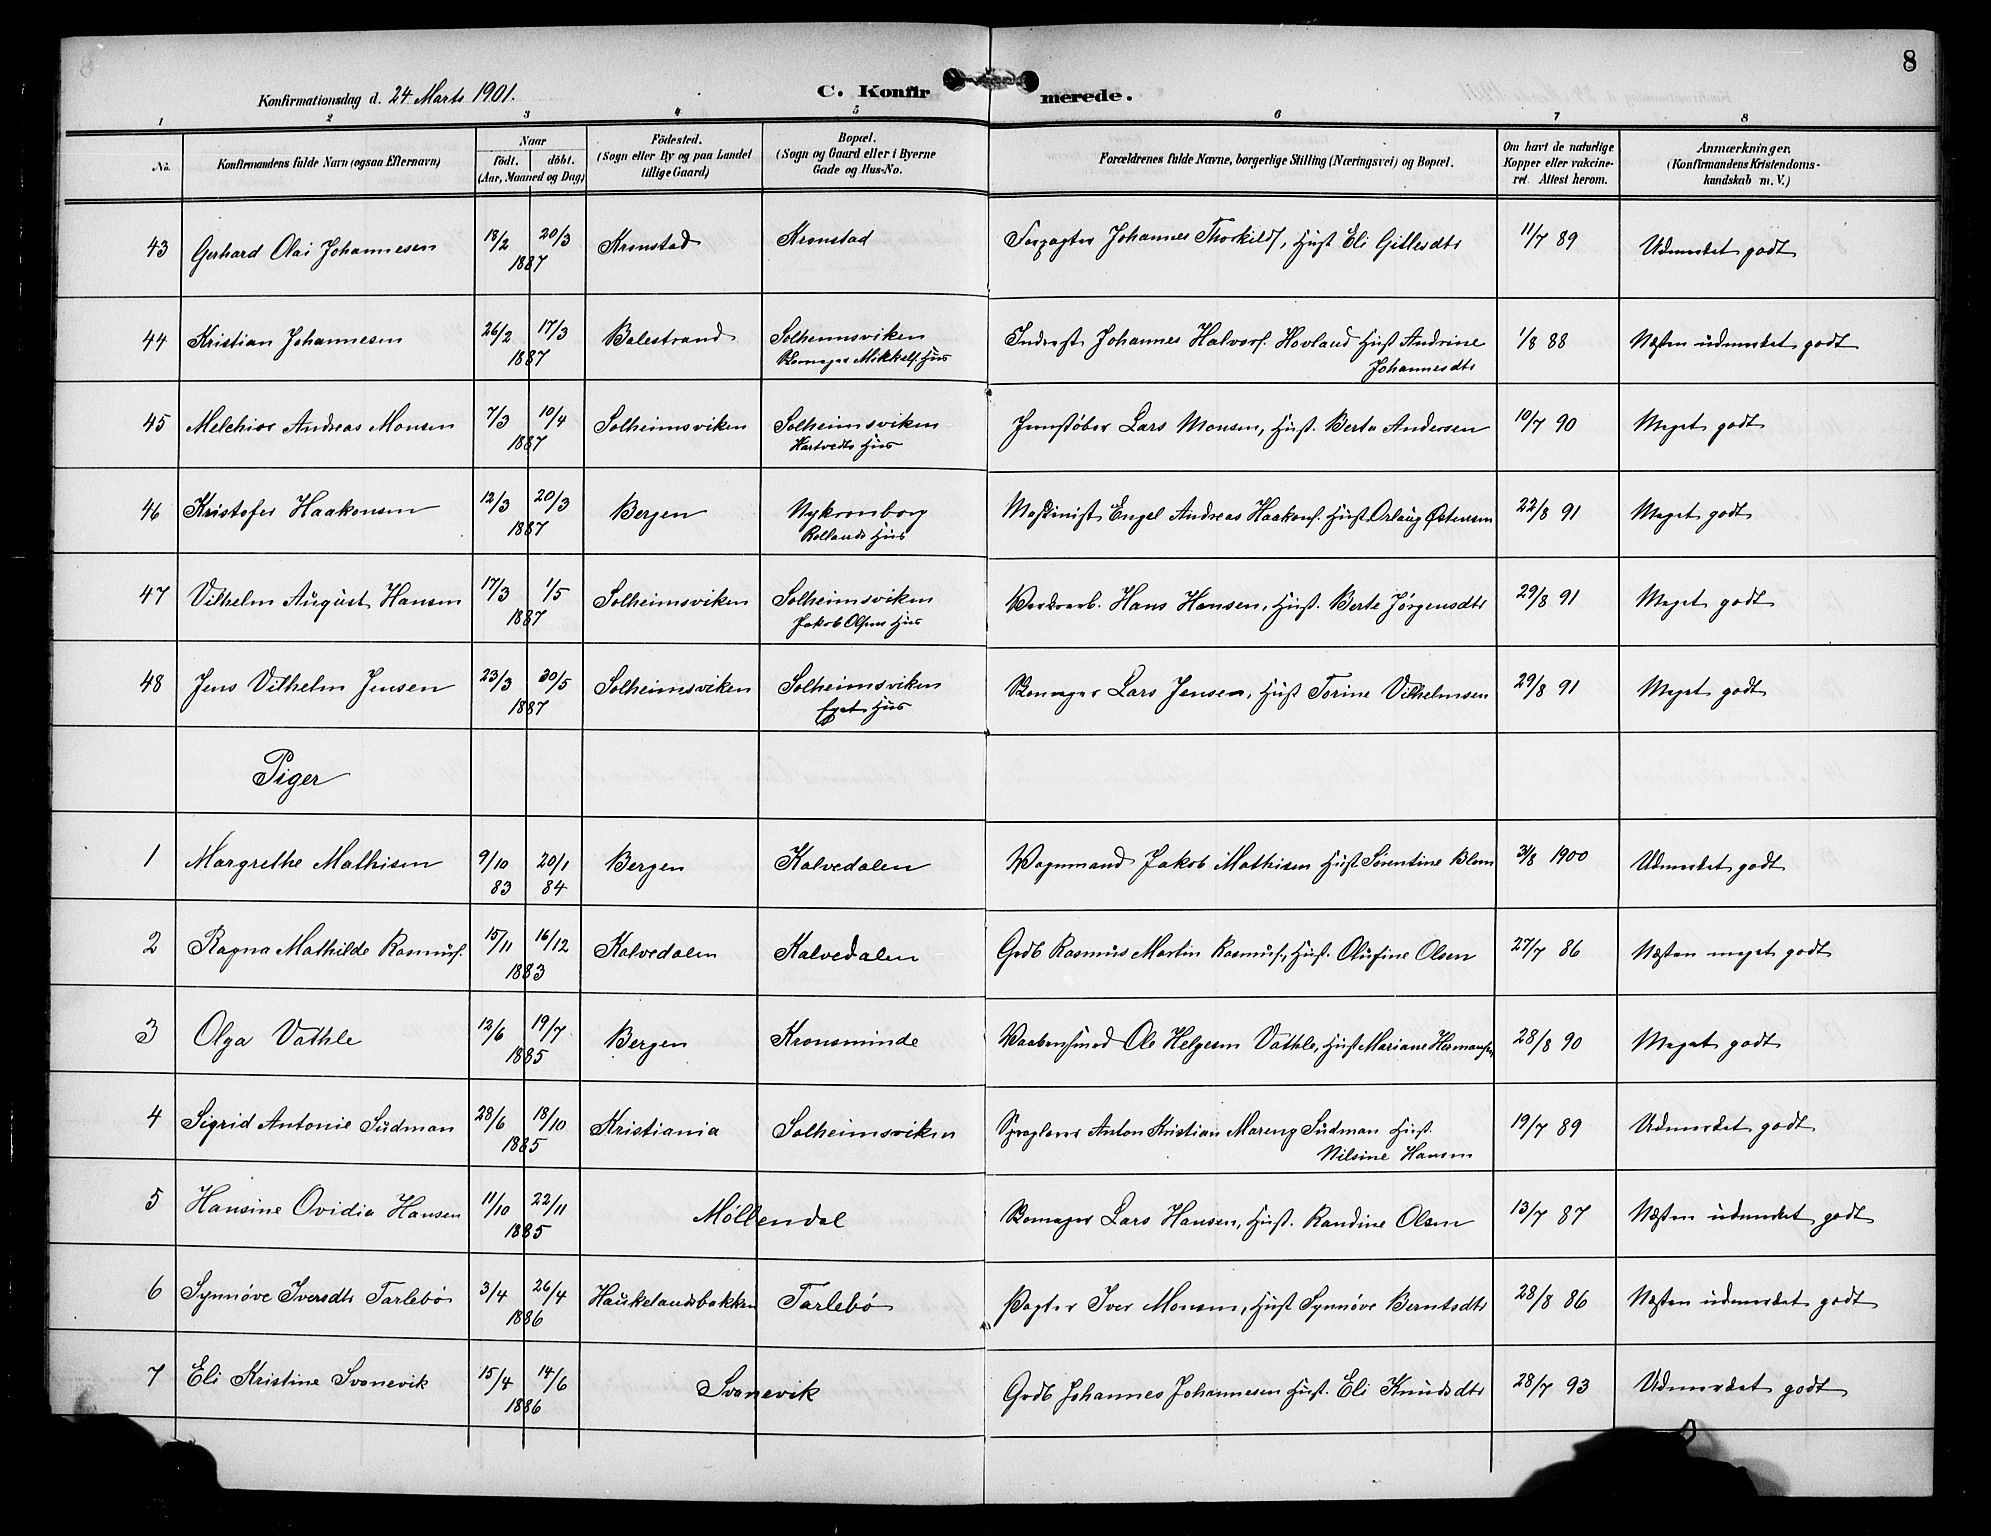 8
Konfirmationsdag d. 24 Marts 1901.
C. Konfirmerede.
1 2 3 4 5 6 7 8
No.
Konfirmandens fulde Navn (ogsaa Efternavn)
Naar
födt. döbt.
(Aar, Maaned og Dag)
Födested.
(Sogn eller By og paa Landet
tillige Gaard)
Bopæl.
(Sogn og Gaard eller i Byerne
Gade og Hus-No.
Forældrenes fulde Navne, borgerlige Stilling (Næringsvei) og Bopæl.
Om havt de naturlige
Kopper eller vakcine-
ret. Attest herom.
Anmærkninger.
(Konfirmandens Kristendoms-
kundskab m. V.)
43 Gerhard Olai Johannesen 18/2 20/3 Kronstad Kronstad Forpagter Johannes Thorkilds, Hust Eli Gillesdtr 11/7 89 Udmerket godt
1887
44 Kristian Johannesen 26/2 17/3 Balestrand Solheimsviken Johannes Halvors. Hovland Hust Andrine 1/8 88 Næsten udmerket godt
1887 Mikkels. Hus Johannesdtr
45 Melchior Andreas Monsen 7/3 10/4 Solheimsviken Solheimsviken Jernstøber Lars Monsen, Hust. Berta Andersen 10/7 90 Meget godt
1887 Hartvedts Hus
46 Kristofer Haakonsen 12/3 20/3 Bergen Nykronborg Maskinist Engel Andreas Haakons. Hust Orlaug Østensen 22/8 91 Meget godt
1887 Rollands Hus
47 Vilhelm August Hansen 17/3 1/5 Solheimsviken Solheimsviken Verdsarb. Hans Hansen, Hust. Berte Jørgensdtr 29/8 91 Meget godt
1887 Jakob Olsens Hus
48 Jens Vilhelm Jensen 23/3 30/5 Solheimsviken Solheimsviken Skomager Lars Jensen, Hust Torine Vilhelmsen 29/8 91 Meget godt
1887 Eget Hus
Piger
1 Margrethe Mathisen 9/10 20/1 Bergen Kalvedalen Vognmand Jakob Mathisen Hust Sørentine Blom 3/8 1900 Udmerket godt
83 84
2 Ragna Mathilde Rasmus. 15/11 16/12 Kalvedalen Kalvedalen Grdb Rasmus Martin Rasmus., Hust. Olufine Olsen 27/7 86 Næsten meget godt
1883
3 Olga Vathle 12/6 19/7 Bergen Kronsminde Vaabensmed Ole Helgesen Vathle, Hust Mariane Hermansen 28/8 90 Meget godt
1885
4 Sigrid Antonie Sudman 28/6 18/10 Kristiania Solheimsviken Anton Kristian Sudman Hust. 19/7 89 Udmerket godt
1885 Nilsine Hansen
5 Hansine Ovidia Hansen 11/10 22/11 Møllendal Skomager Lars Hansen, Hust. Randine Olsen 13/7 87 Næsten udmerket godt
1885
6 Synnøve Iversdtr Tarlebø 3/4 26/4 Haukelandsbakken Tarlebø Pagter Iver Monsen, Hust Synnøve Berntsdtr 28/8 86 Næsten udmerket godt
1886
7 Eli Kristine Svanevik 15/4 14/6 Svanevik Grdb Johannes Johannesen Hust. Eli Knudsdtr 28/7 93 Udmerket godt
1886